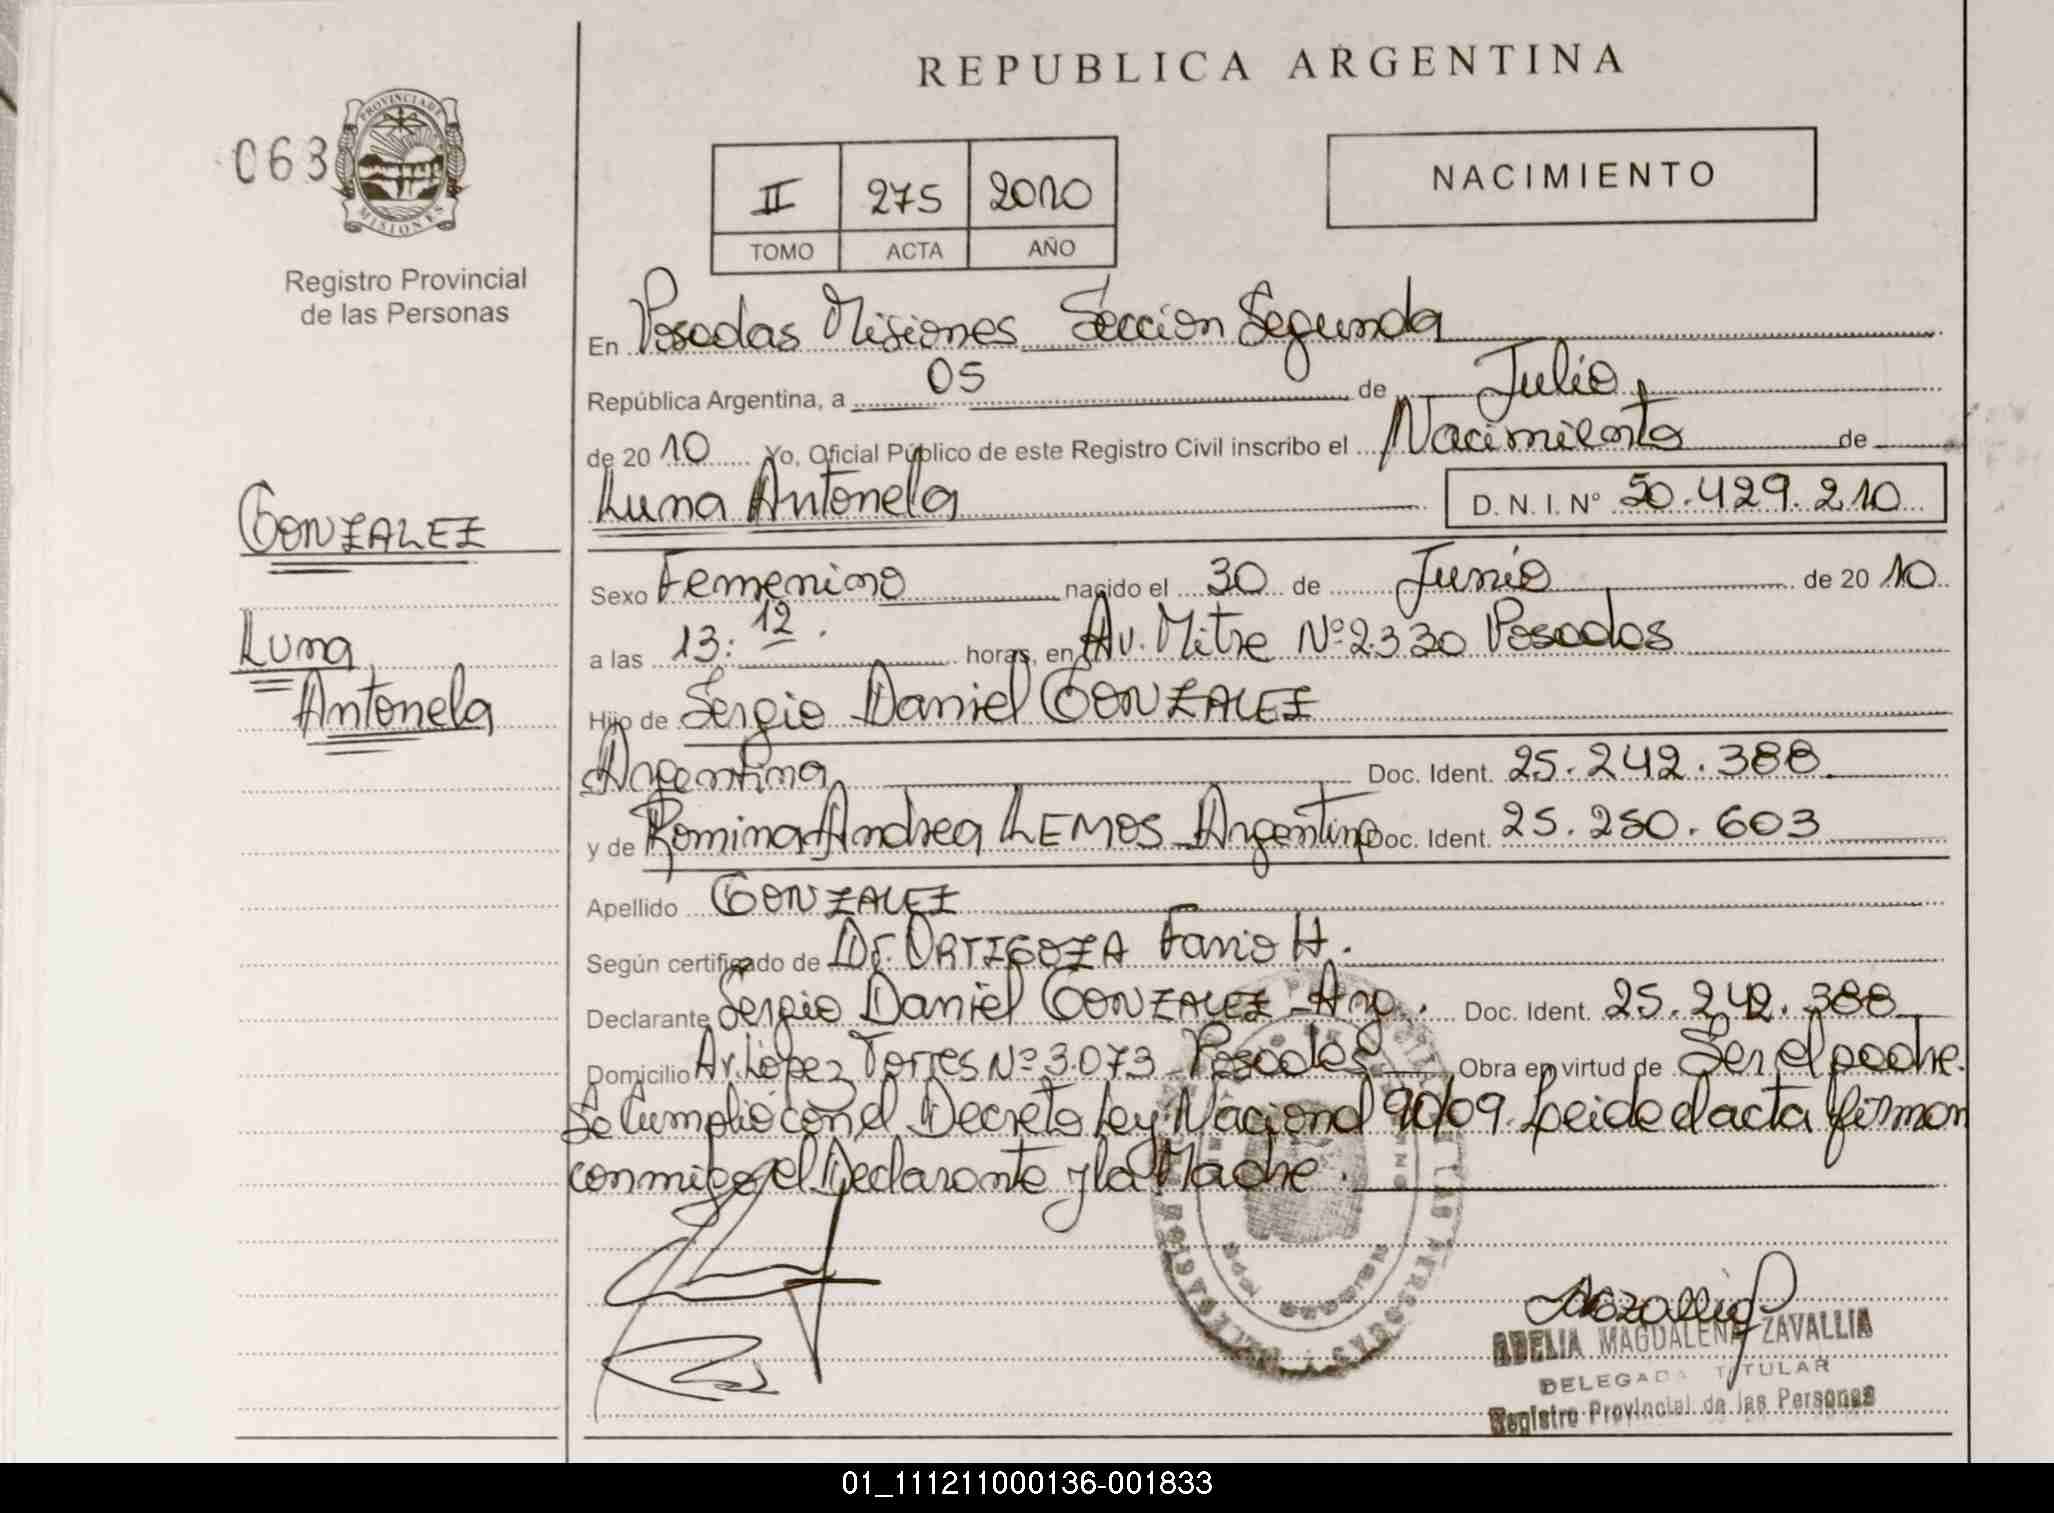 REPUBLICA ARGENTINA
063
PROVINCIA DE
MISIONES
Registro Provincial
de las Personas
II 275 2010
TOMO ACTA AÑO
NACIMIENTO
En Posadas Misiones Seccion Segunda
República Argentina, a 05 de Julio
de 20 10 Yo, Oficial Público de este Registro Civil inscribo el Nacimiento de
Luna Antonela D. N. I. Nº 50.429.210
GONZALEZ
Sexo Femenino nacido el 30 de Junio de 20 10
Luna
a las 13:12. horas, en Av. Mitre Nº 2.330 Posadas
Antonela
Hijo de Sergio Daniel GONZALEZ
Argentina Doc. Ident. 25.242.388
y de Romina Andrea LEMOS Argentina Doc. Ident. 25.250.603
Apellido GONZALEZ
Según certificado de Dr. ORTIGOZA Favio H.
Declarante Sergio Daniel GONZALEZ - Arg. Doc. Ident. 25.242.388
Domicilio Av. López Torres Nº 3.073 Posadas Obra en virtud de Ser el padre.
Se Cumplió con el Decreto Ley Nacional 90/09. Leida el acta firman
conmigo el Declarante y la Madre.
ADELIA MAGDALENA ZAVALLIA
DELEGADA TITULAR
Registro Provincial de las Personas
01_111211000136-001833